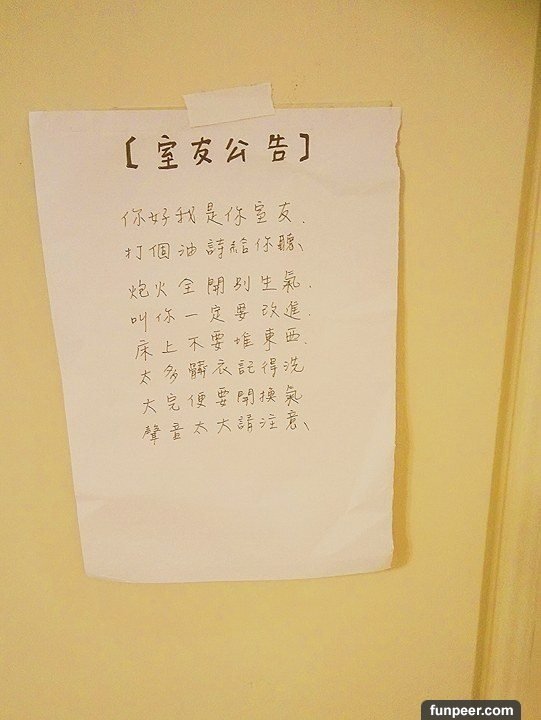 【室友公告】
你好我是你室友.
打個油詩給你聽、
炮火全開別生氣.
叫你一定要改進.
床上不要堆東西、
太多髒衣記得洗
大完便要開換氣
聲音太大請注意、
funpeer.com